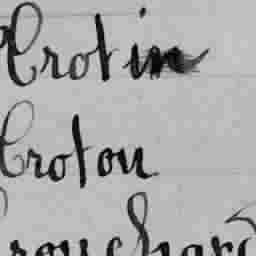 Crotin
Croton